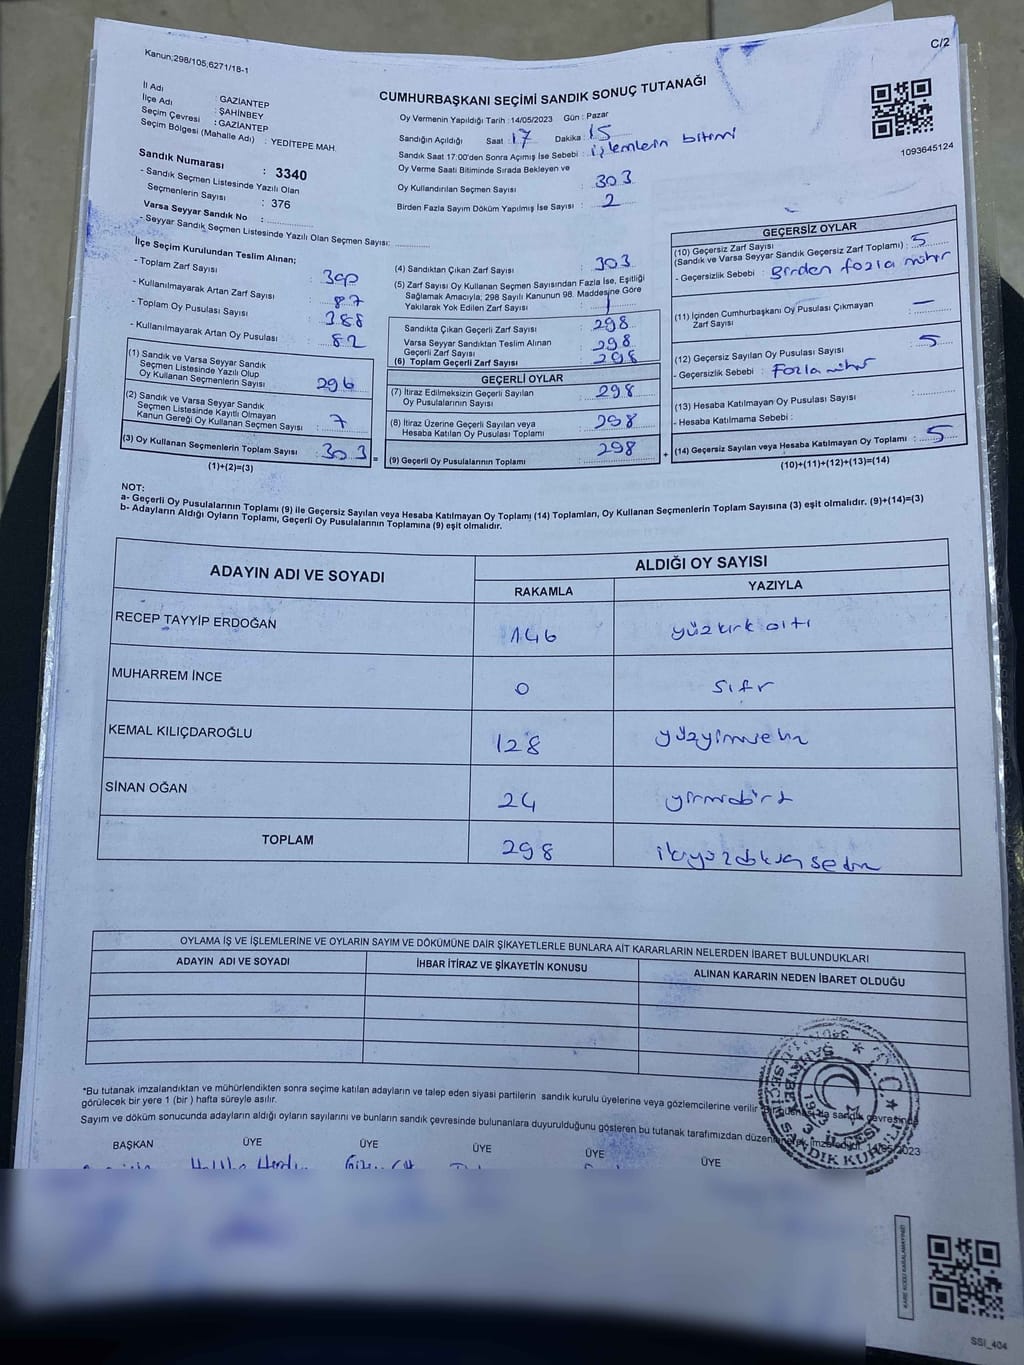 C/2
Kanun;298/105,6271/18-1
CUMHURBAŞKANI SEÇİMİ SANDIK SONUÇ TUTANAĞI
İl Adı : GAZİANTEP
İlçe Adı : ŞAHİNBEY
Seçim Çevresi : GAZİANTEP
Seçim Bölgesi (Mahalle Adı) : YEDİTEPE MAH.
Sandık Numarası : 3340
- Sandık Seçmen Listesinde Yazılı Olan
Seçmenlerin Sayısı : 376
Varsa Seyyar Sandık No :
- Seyyar Sandık Seçmen Listesinde Yazılı Olan Seçmen Sayısı:
Oy Vermenin Yapıldığı Tarih : 14/05/2023 Gün : Pazar
Sandığın Açıldığı Saat : 17 Dakika : 15
Sandık Saat 17:00'den Sonra Açımış İse Sebebi : işlemlerin bitimi
Oy Verme Saati Bitiminde Sırada Bekleyen ve
Oy Kullandırılan Seçmen Sayısı : 303
Birden Fazla Sayım Döküm Yapılmış İse Sayısı : 2
1093645124
İlçe Seçim Kurulundan Teslim Alınan;
- Toplam Zarf Sayısı : 390
- Kullanılmayarak Artan Zarf Sayısı : 87
- Toplam Oy Pusulası Sayısı : 388
- Kullanılmayarak Artan Oy Pusulası : 82
(1) Sandık ve Varsa Seyyar Sandık
Seçmen Listesinde Yazılı Olup
Oy Kullanan Seçmenlerin Sayısı : 296
(2) Sandık ve Varsa Seyyar Sandık
Seçmen Listesinde Kayıtlı Olmayan
Kanun Gereği Oy Kullanan Seçmen Sayısı : 7
(3) Oy Kullanan Seçmenlerin Toplam Sayısı : 303
(1)+(2)=(3)
(4) Sandıktan Çıkan Zarf Sayısı : 303
(5) Zarf Sayısı Oy Kullanan Seçmen Sayısından Fazla İse, Eşitliği
Sağlamak Amacıyla; 298 Sayılı Kanunun 98. Maddesine Göre
Yakılarak Yok Edilen Zarf Sayısı :
Sandıkta Çıkan Geçerli Zarf Sayısı : 298
Varsa Seyyar Sandıktan Teslim Alınan
Geçerli Zarf Sayısı : 298
(6) Toplam Geçerli Zarf Sayısı : 298
GEÇERLİ OYLAR
(7) İtiraz Edilmeksizin Geçerli Sayılan
Oy Pusulalarının Sayısı : 298
(8) İtiraz Üzerine Geçerli Sayılan veya
Hesaba Katılan Oy Pusulası Toplamı : 298
(9) Geçerli Oy Pusulalarının Toplamı : 298
GEÇERSİZ OYLAR
(10) Geçersiz Zarf Sayısı
(Sandık ve Varsa Seyyar Sandık Geçersiz Zarf Toplamı) : 5
- Geçersizlik Sebebi : Birden fazla mühür
(11) İçinden Cumhurbaşkanı Oy Pusulası Çıkmayan
Zarf Sayısı : —
(12) Geçersiz Sayılan Oy Pusulası Sayısı : 5
- Geçersizlik Sebebi : Fazla mühür
(13) Hesaba Katılmayan Oy Pusulası Sayısı :
- Hesaba Katılmama Sebebi :
(14) Geçersiz Sayılan veya Hesaba Katılmayan Oy Toplamı : 5
(10)+(11)+(12)+(13)=(14)
NOT:
a- Geçerli Oy Pusulalarının Toplamı (9) ile Geçersiz Sayılan veya Hesaba Katılmayan Oy Toplamı (14) Toplamları, Oy Kullanan Seçmenlerin Toplam Sayısına (3) eşit olmalıdır. (9)+(14)=(3)
b- Adayların Aldığı Oyların Toplamı, Geçerli Oy Pusulalarının Toplamına (9) eşit olmalıdır.
ADAYIN ADI VE SOYADI ALDIĞI OY SAYISI
RAKAMLA YAZIYLA
RECEP TAYYİP ERDOĞAN 146 yüzkırk altı
MUHARREM İNCE 0 sıfır
KEMAL KILIÇDAROĞLU 128
SİNAN OĞAN 24
TOPLAM 298
OYLAMA İŞ VE İŞLEMLERİNE VE OYLARIN SAYIM VE DÖKÜMÜNE DAİR ŞİKAYETLERLE BUNLARA AİT KARARLARIN NELERDEN İBARET BULUNDUKLARI
ADAYIN ADI VE SOYADI İHBAR İTİRAZ VE ŞİKAYETİN KONUSU ALINAN KARARIN NEDEN İBARET OLDUĞU
*Bu tutanak imzalandıktan ve mühürlendikten sonra seçime katılan adayların ve talep eden siyasi partilerin sandık kurulu üyelerine veya gözlemcilerine verilir. Bir nüshası da sandık çevresinde
görülecek bir yere 1 (bir ) hafta süreyle asılır.
Sayım ve döküm sonucunda adayların aldığı oyların sayılarını ve bunların sandık çevresinde bulunanlara duyurulduğunu gösteren bu tutanak tarafımızdan düzenlenerek imza edildi. 14/05/2023
BAŞKAN ÜYE ÜYE ÜYE ÜYE ÜYE
T.C.
İLÇESİ
KARE KODU KARALAMAYINIZ!
SSI_404